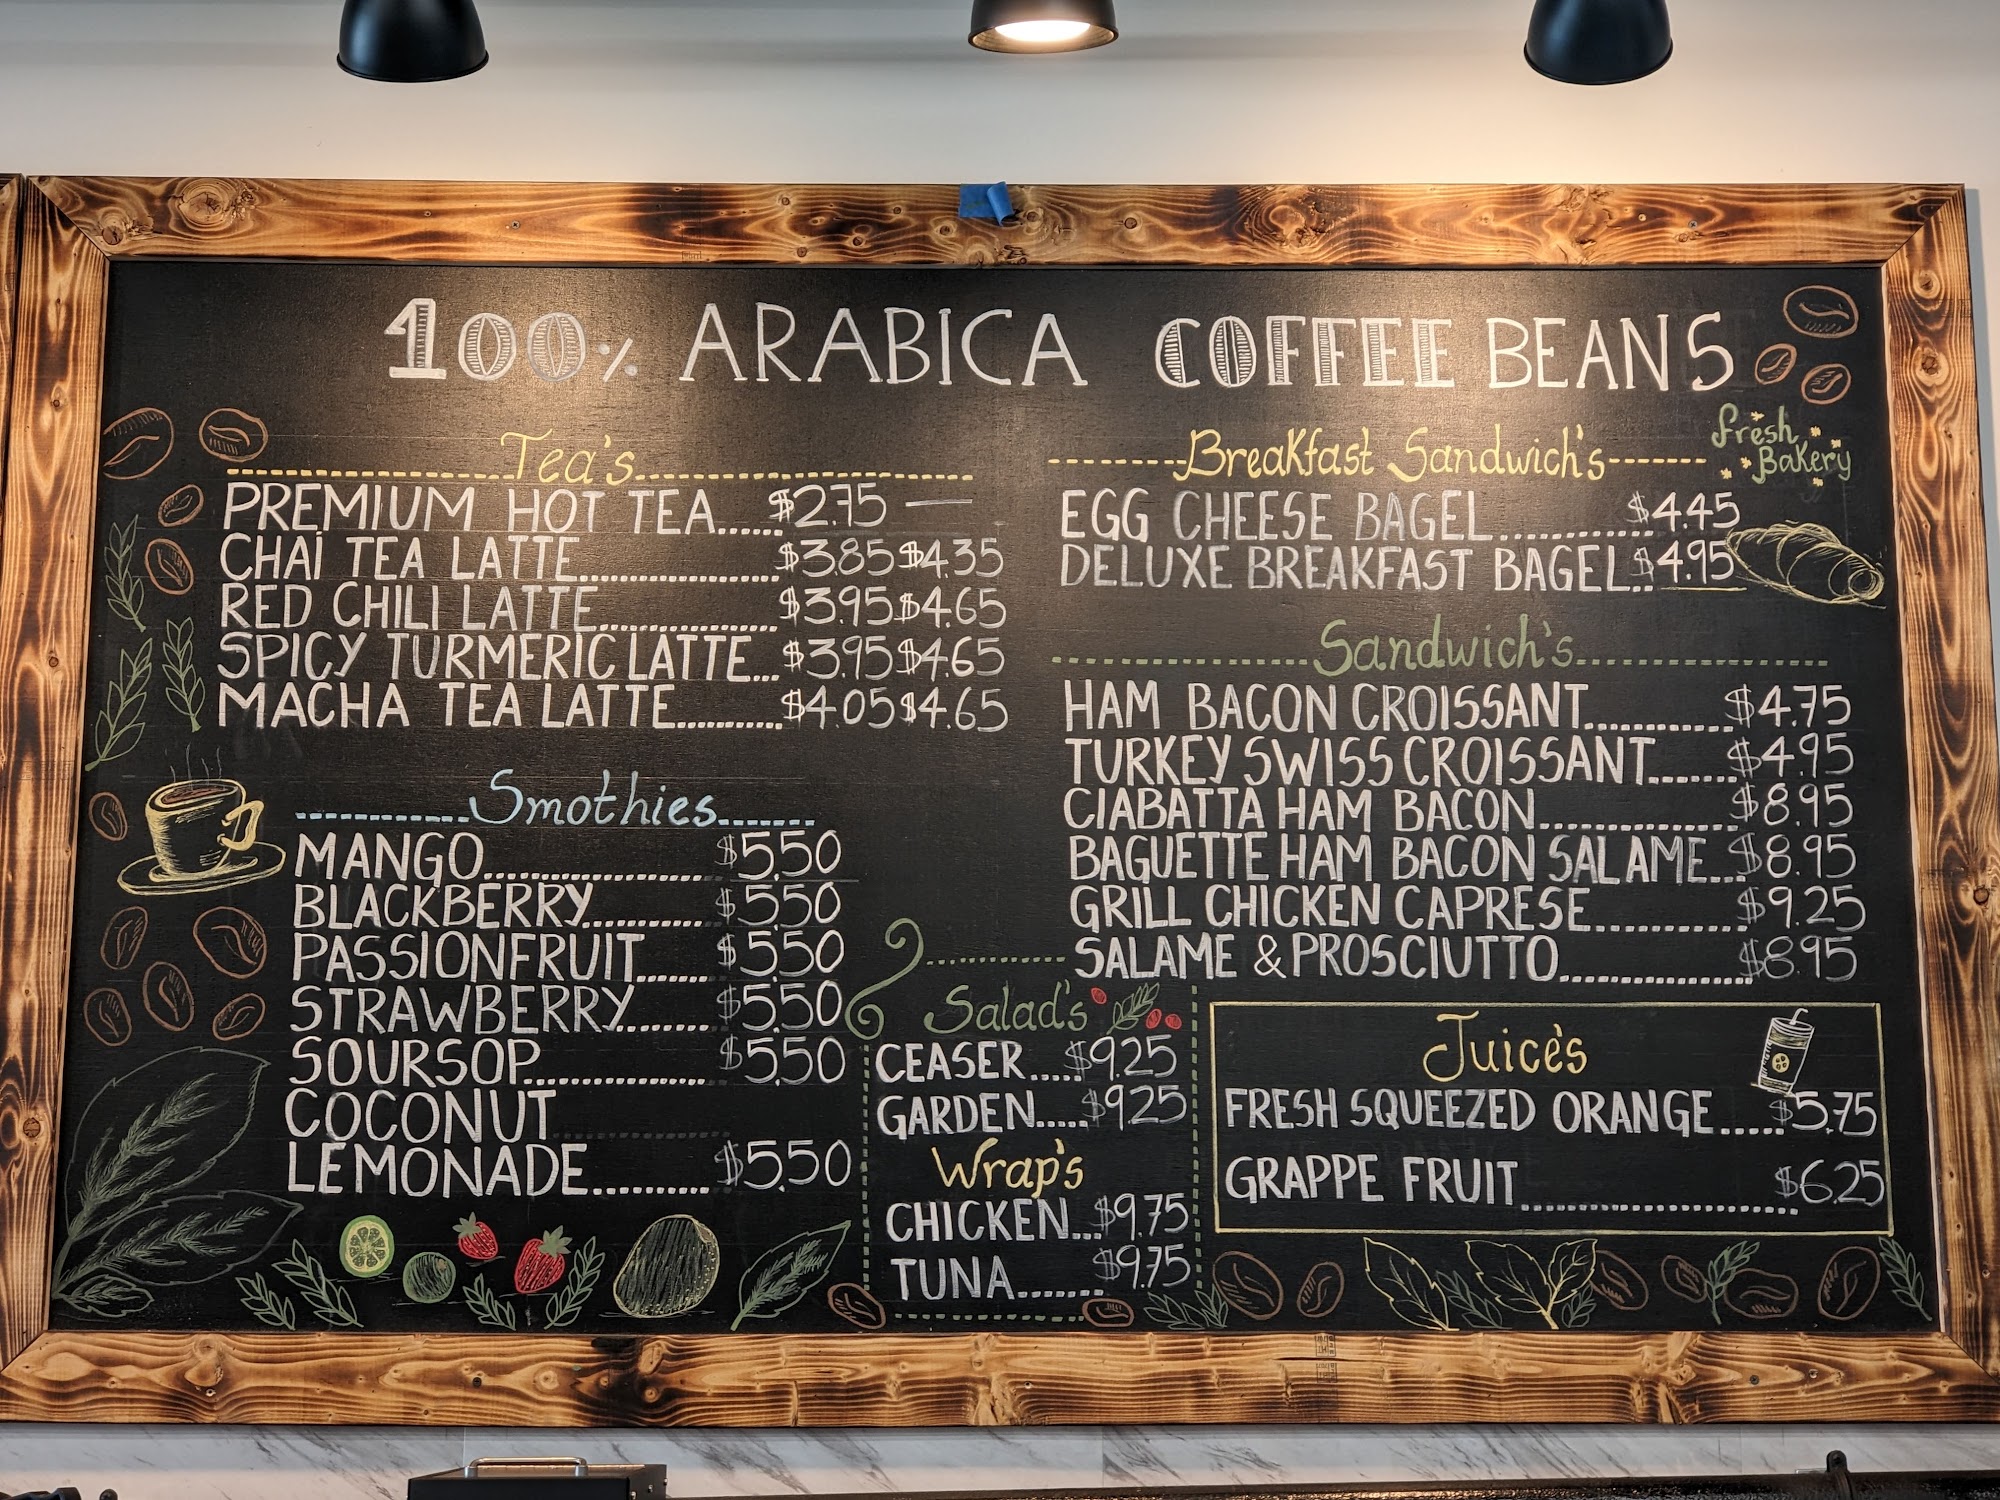 100% ARABICA COFFEE BEANS
Tea's
PREMIUM HOT TEA.....$2.75 —
CHAI TEA LATTE....................$3.85 $4.35
RED CHILI LATTE..................$3.95 $4.65
SPICY TURMERIC LATTE...$3.95 $4.65
MACHA TEA LATTE..........$4.05 $4.65
Smothies
MANGO......................$5.50
BLACKBERRY...........$5.50
PASSIONFRUIT.......$5.50
STRAWBERRY........$5.50
SOURSOP.................$5.50
COCONUT
LEMONADE...........$5.50
Breakfast Sandwich's
Fresh
Bakery
EGG CHEESE BAGEL............$4.45
DELUXE BREAKFAST BAGEL..$4.95
Sandwich's
HAM BACON CROISSANT............$4.75
TURKEY SWISS CROISSANT.......$4.95
CIABATTA HAM BACON.................$8.95
BAGUETTE HAM BACON SALAME...$8.95
GRILL CHICKEN CAPRESE............$9.25
SALAME & PROSCIUTTO...............$8.95
Salad's
CEASER.....$9.25
GARDEN.....$9.25
Wrap's
CHICKEN...$9.75
TUNA........$9.75
Juice's
FRESH SQUEEZED ORANGE.....$5.75
GRAPPE FRUIT........................$6.25